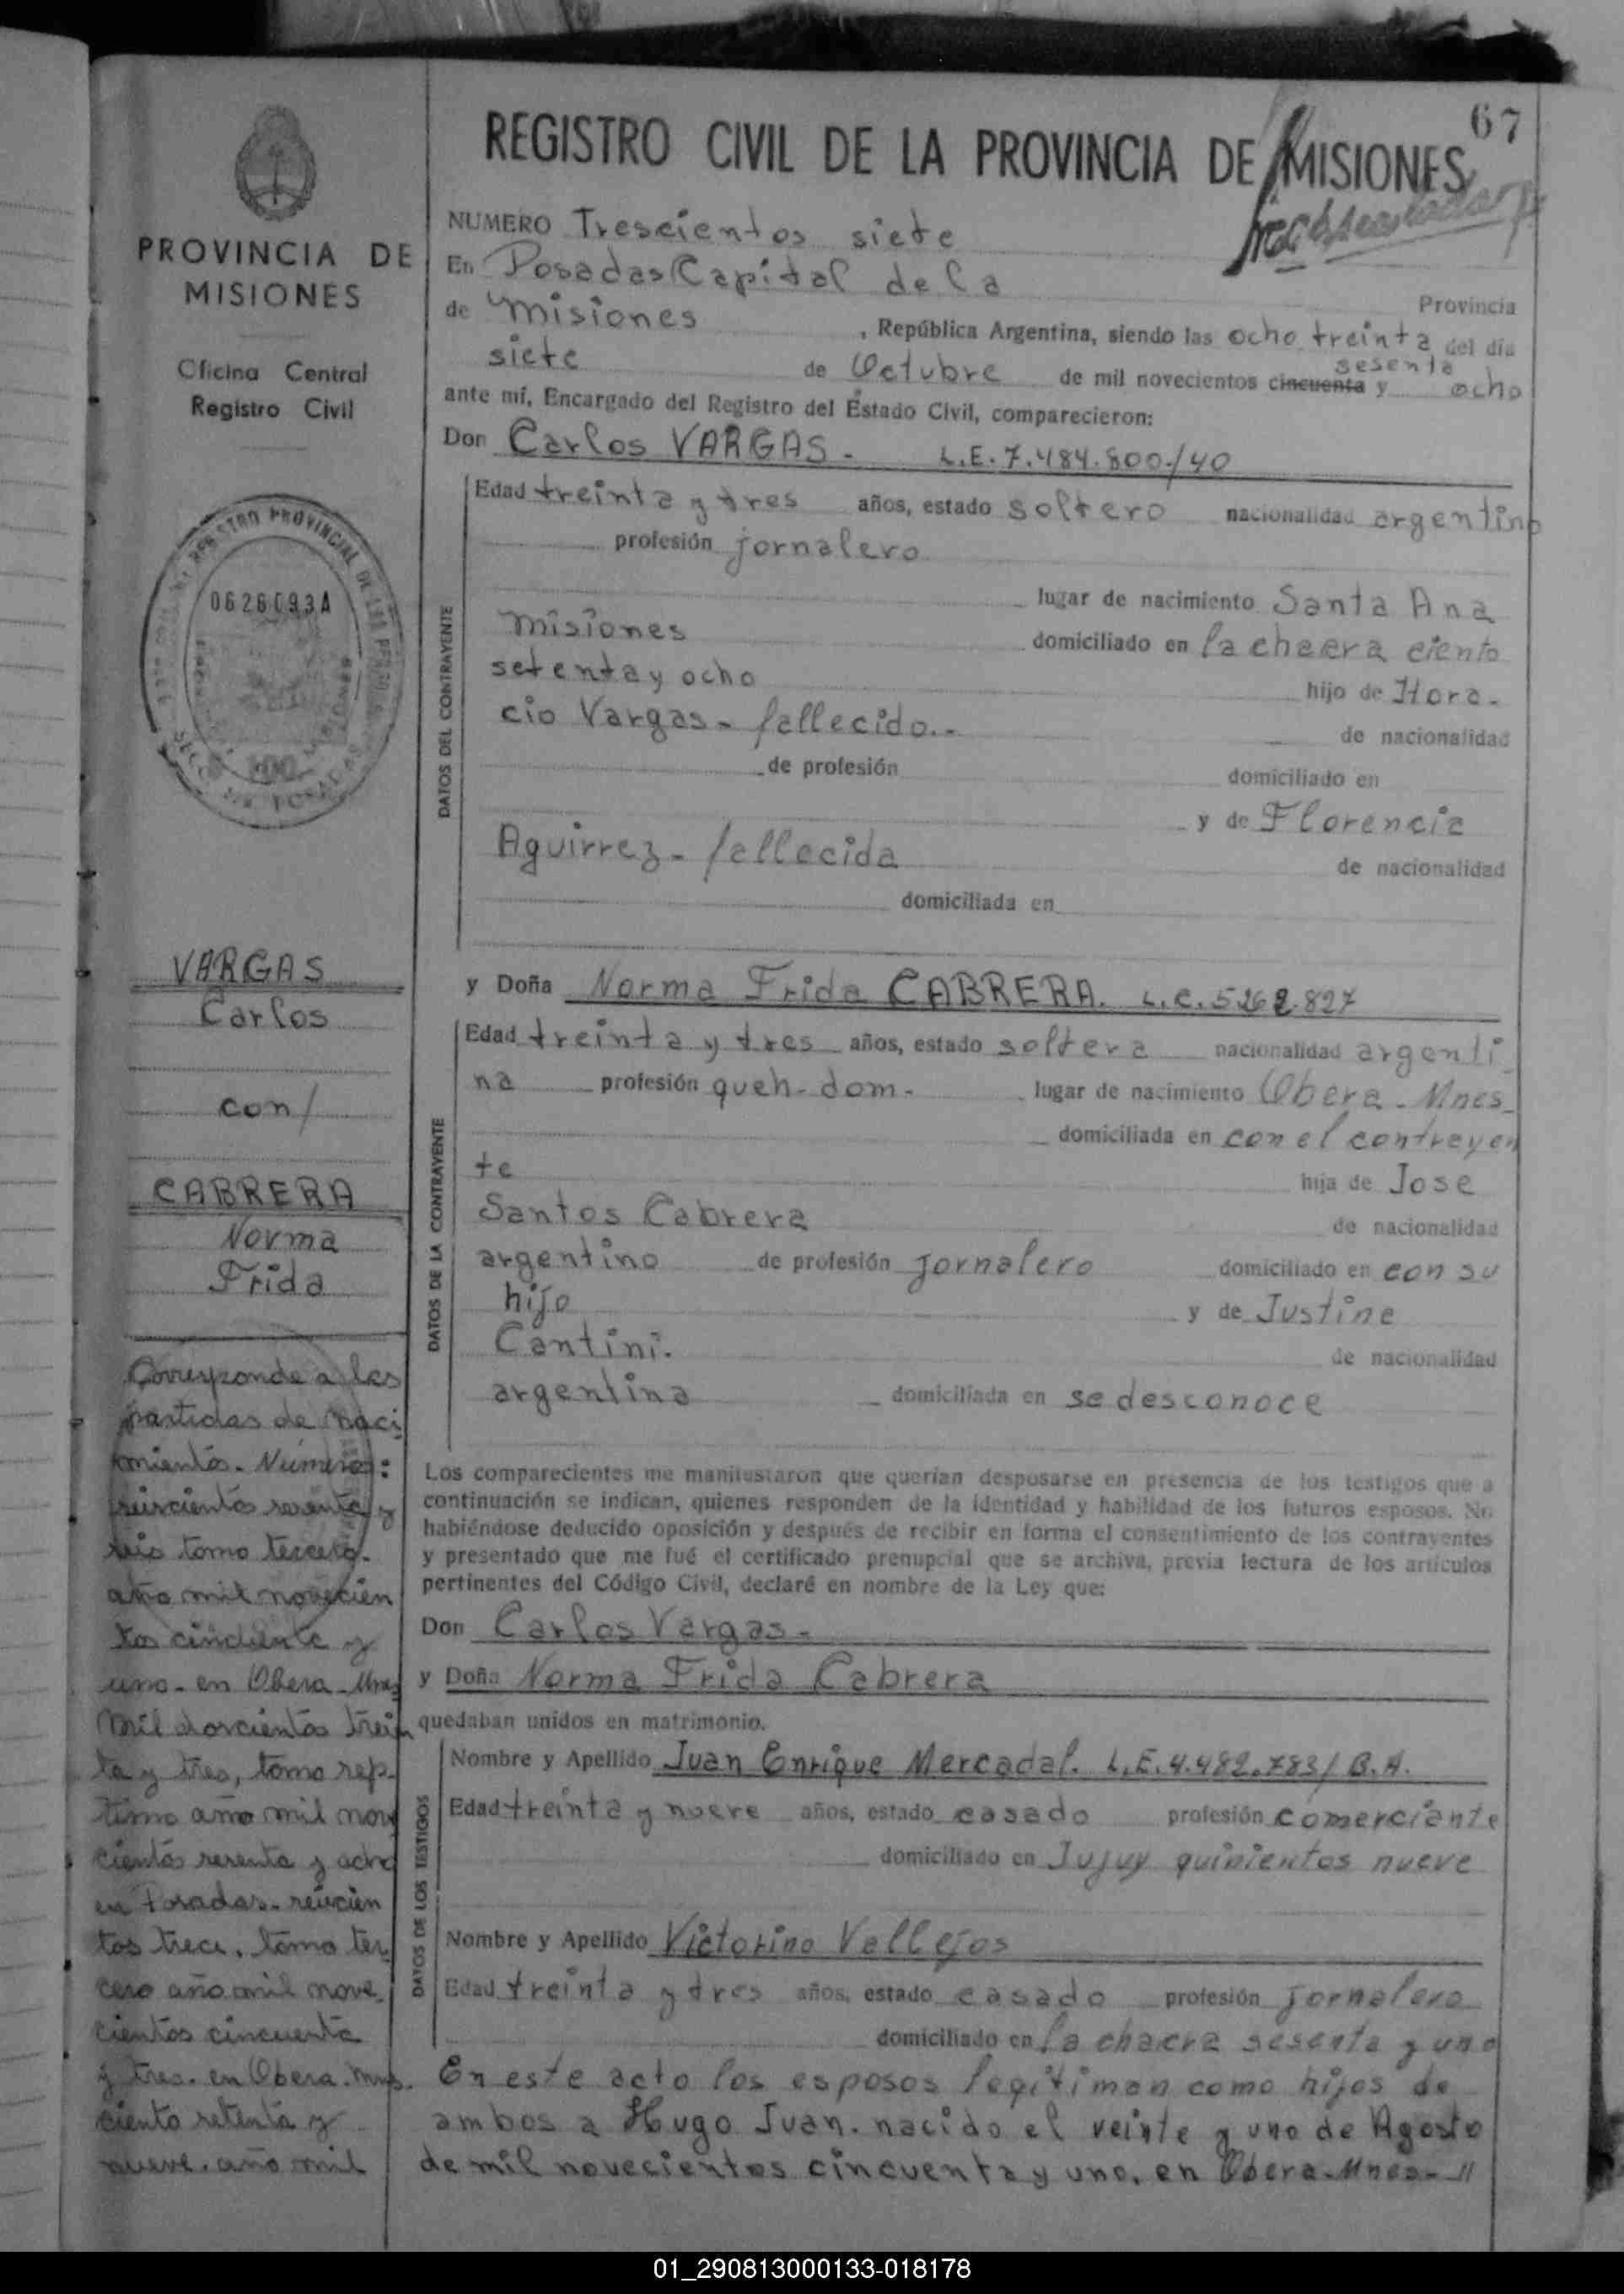 67
REGISTRO CIVIL DE LA PROVINCIA DE MISIONES
PROVINCIA DE
MISIONES
Oficina Central
Registro Civil
0626093A
100
VARGAS
Carlos
con/
CABRERA
Norma
Frida
Corresponde a las
partidas de naci
mientos. Número:
seiscientos sesenta y
seis tomo tercero.
año mil novecien
tos cincuenta y
uno. en Obera. Mnes
mil doscientos trein
ta y tres, tomo sep-
timo año mil nove
cientos sesenta y ocho
en Posadas. seiscien
tos trece, tomo ter
cero año mil nove
cientos cincuenta
y tres. en Obera. Mnes.
ciento setenta y
nueve. año mil
NUMERO Trescientos siete
En Posadas Capital de la Provincia
de Misiones , República Argentina, siendo las ocho treinta del día
siete de Octubre de mil novecientos cincuenta sesenta y ocho
ante mí, Encargado del Registro del Estado Civil, comparecieron:
Don Carlos VARGAS. L.E. 7.484.800/40
DATOS DEL CONTRAYENTE
Edad treinta y tres años, estado soltero nacionalidad argentino
profesión jornalero
lugar de nacimiento Santa Ana
Misiones domiciliado en la chacra ciento
setenta y ocho hijo de Hora-
cio Vargas - fallecido.- de nacionalidad
de profesión domiciliado en
y de Florencia
Aguirrez - fallecida de nacionalidad
domiciliada en
y Doña Norma Frida CABRERA. L.C. 5.262.827
DATOS DE LA CONTRAYENTE
Edad treinta y tres años, estado soltera nacionalidad argenti
na profesión queh-dom- lugar de nacimiento Obera - Mnes-
domiciliada en con el contrayen
te hija de Jose
Santos Cabrera de nacionalidad
argentino de profesión jornalero domiciliado en con su
hijo y de Justina
Cantini. de nacionalidad
argentina domiciliada en se desconoce
Los comparecientes me manifestaron que querían desposarse en presencia de los testigos que a
continuación se indican, quienes responden de la identidad y habilidad de los futuros esposos. No
habiéndose deducido oposición y después de recibir en forma el consentimiento de los contrayentes
y presentado que me fué el certificado prenupcial que se archiva, previa lectura de los artículos
pertinentes del Código Civil, declaré en nombre de la Ley que:
Don Carlos Vargas -
y Doña Norma Frida Cabrera
quedaban unidos en matrimonio.
DATOS DE LOS TESTIGOS
Nombre y Apellido Juan Enrique Mercadal. L.E. 4.482.783/B.A.
Edad treinta y nueve años, estado casado profesión comerciante
domiciliado en Jujuy quinientos nueve
Nombre y Apellido Victorino Vallejos
Edad treinta y tres años, estado casado profesión jornalero
domiciliado en la chacra sesenta y uno
En este acto los esposos legitiman como hijos de
ambos a Hugo Juan. nacido el veinte y uno de Agosto
de mil novecientos cincuenta y uno. en Obera-Mnes-//
01_290813000133-018178